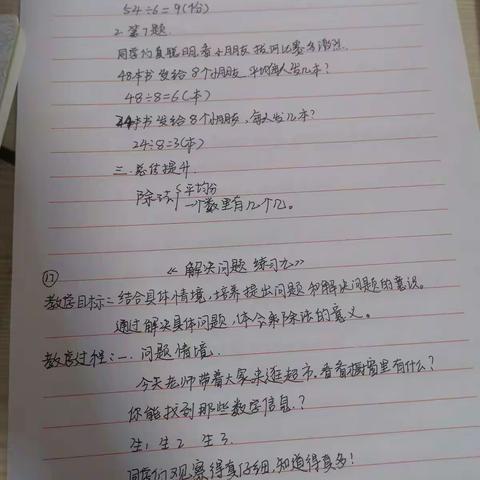 54÷6=9(份)
2.第7题.
同学们真聪明,看小朋友
48本书发给8个小朋友 平均每人发几本?
48÷8=6(本)
24本书发给8个小朋友,每人发几本?
24÷8=3(本)
三.总结提升.
除法{平均分
一个数里有几个几。
⑰
《解决问题 练习九》
教学目标:结合具体情境,培养提出问题和解决问题的意识。
通过解决具体问题,体会乘除法的意义。
教学过程:一.问题情境.
今天老师带着大家来逛超市,看看橱窗里有什么?
你能找到那些数学信息?
生1 生2 生3.
同学们观察得真仔细,知道得真多!